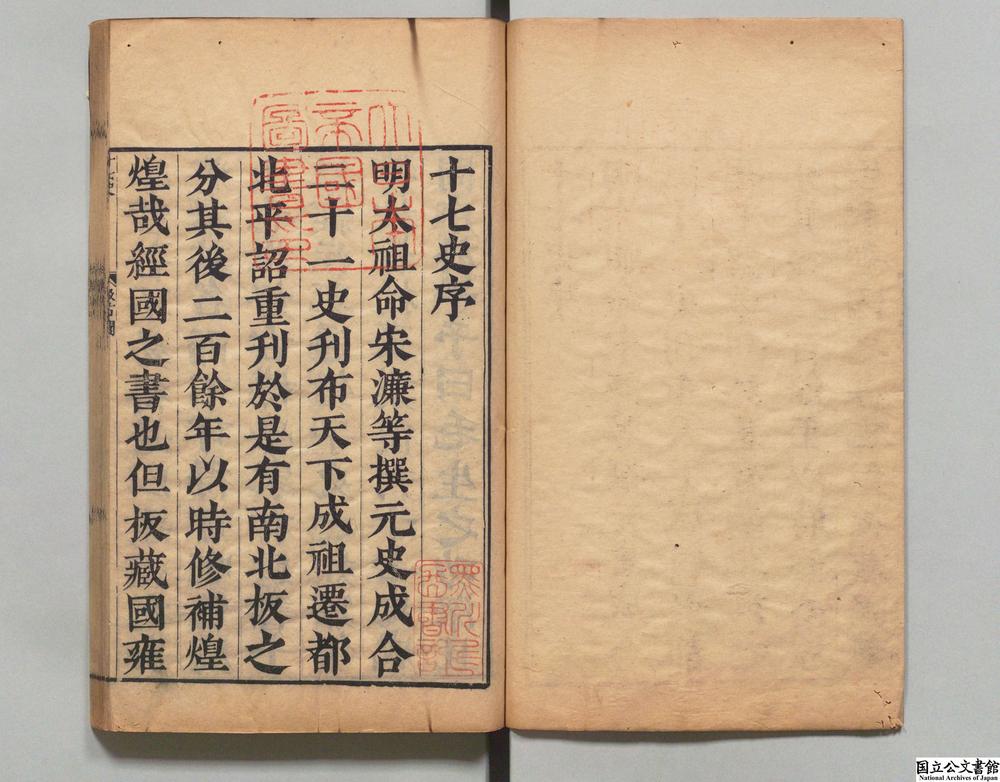 十七史序
明太祖命宋濂等撰元史成合
二十一史刊布天下成祖遷都
北平詔重刊於是有南北板之
分其後二百餘年以時修補煌
煌哉經國之書也但板藏國雍
汲古閣
大日本
帝國
圖書印
国立公文書館
National Archives of Japan